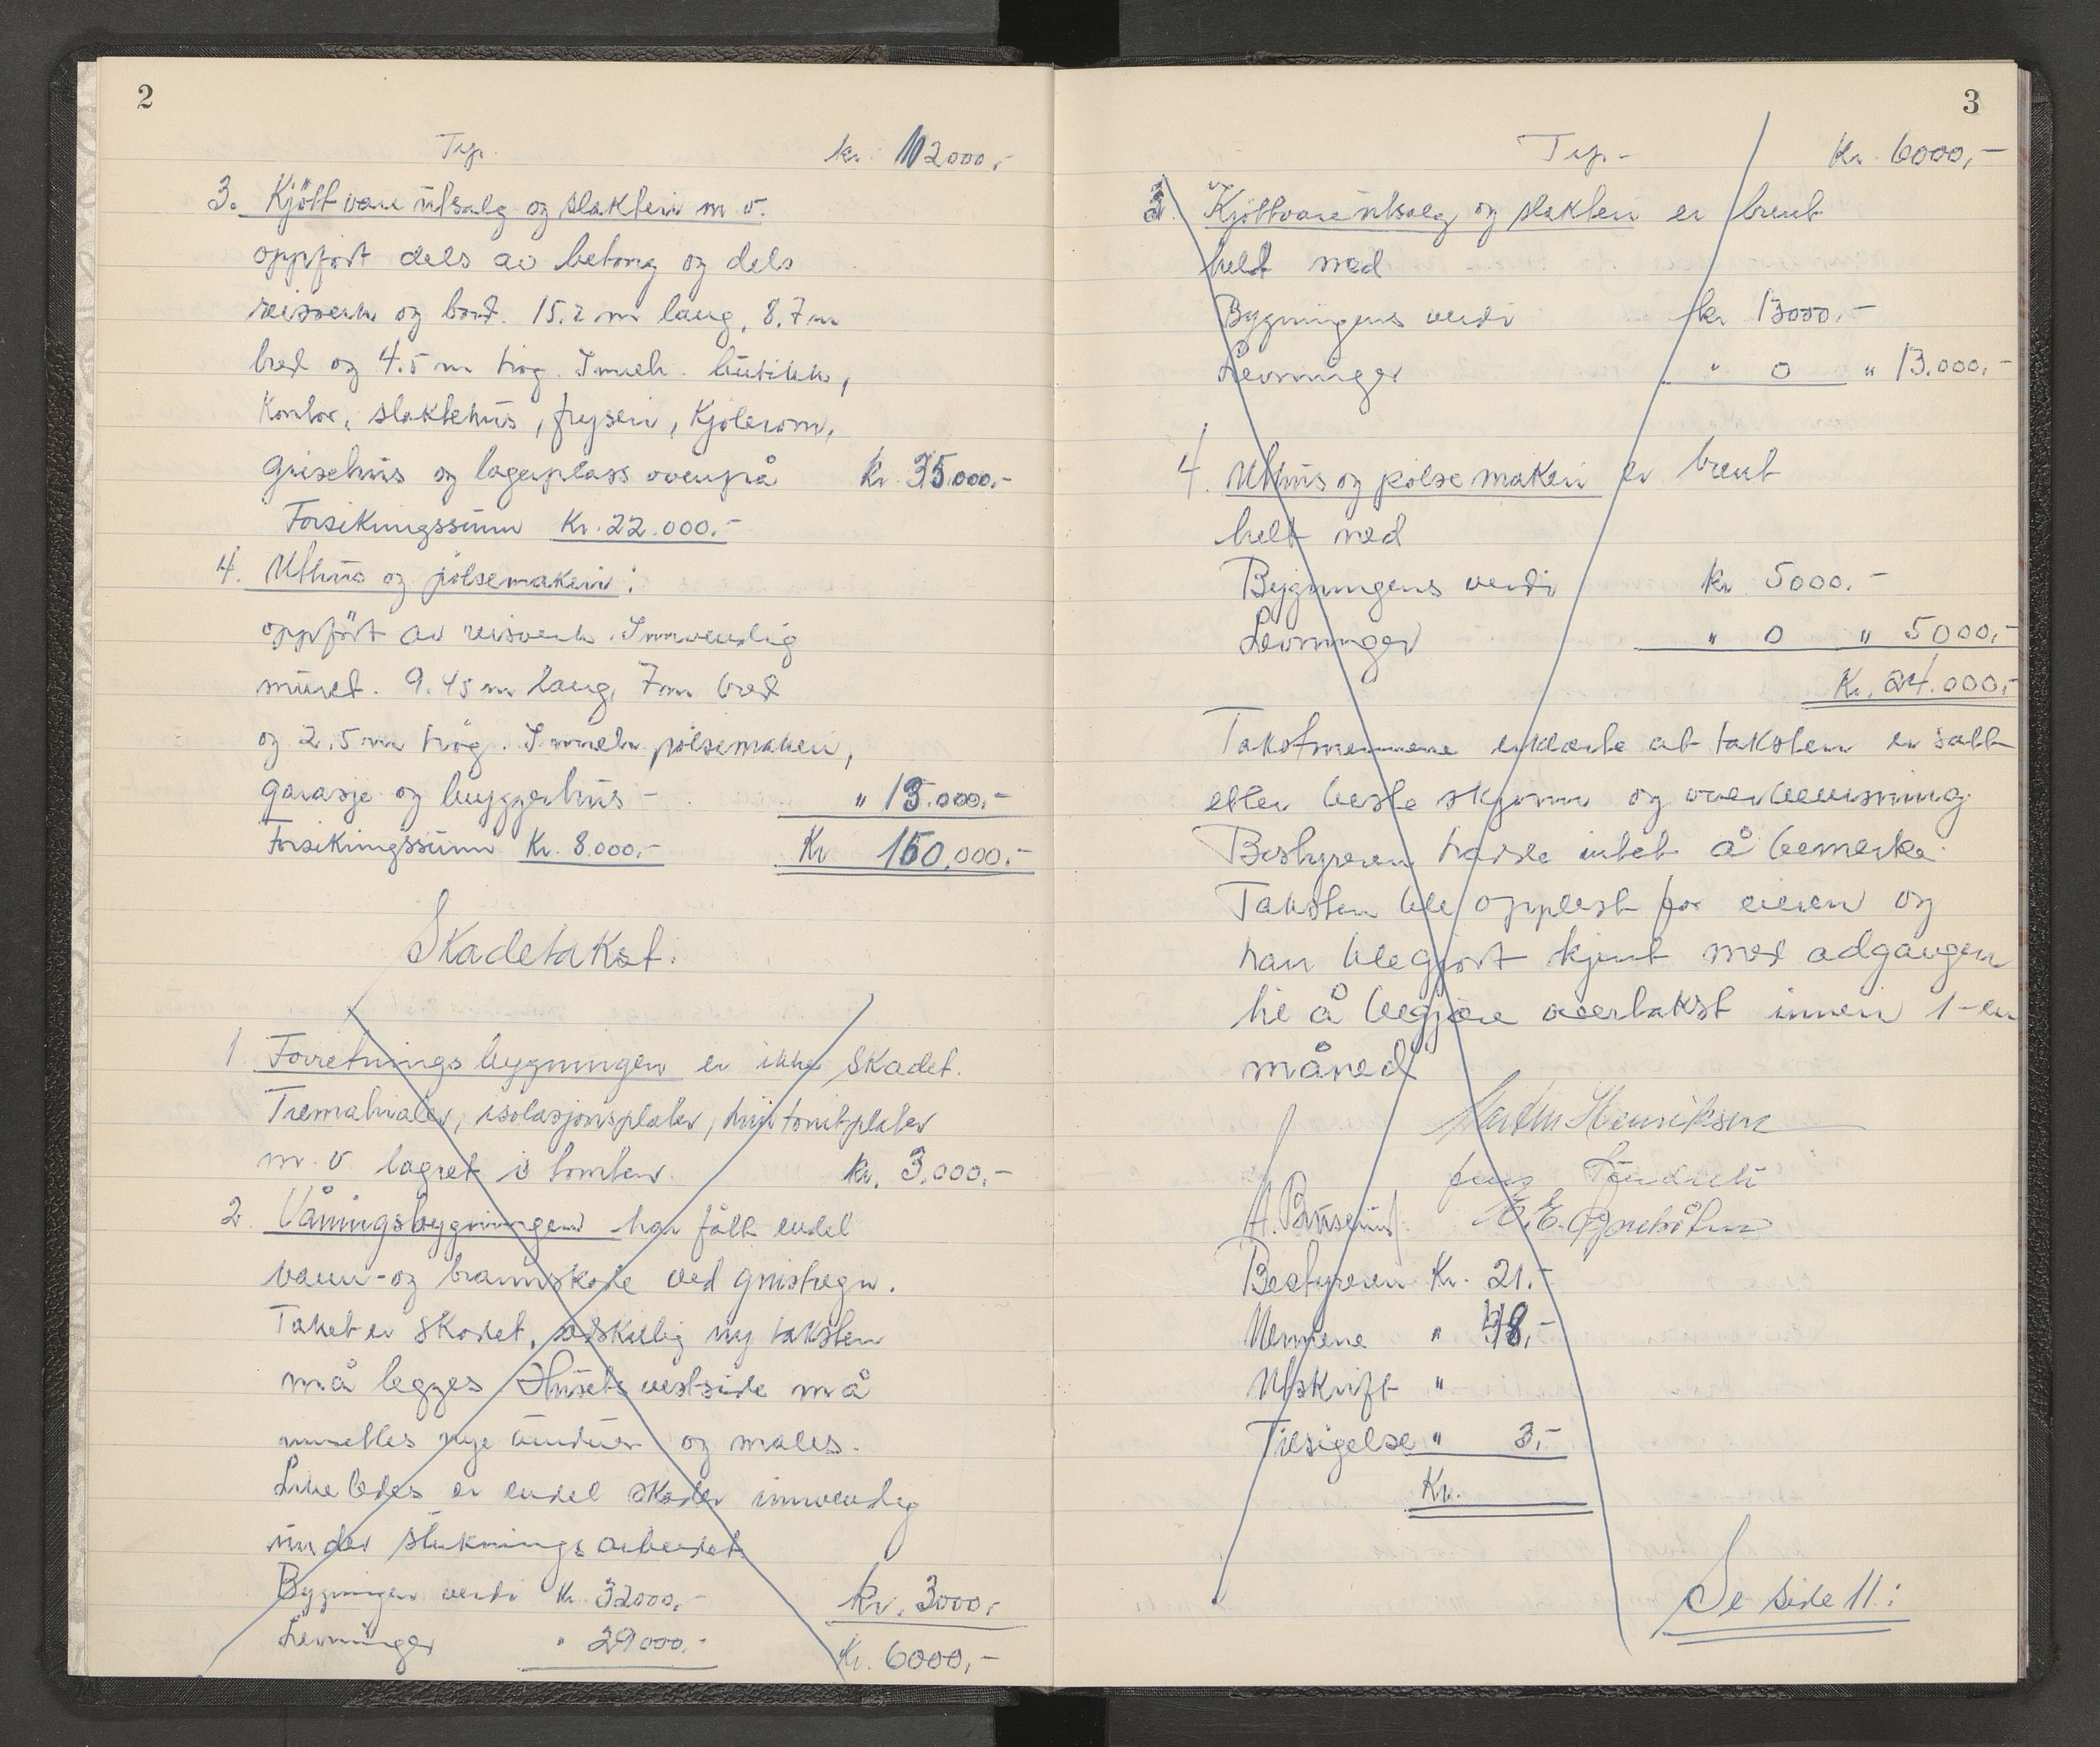 2
Trp. kr. 112000,-
3. Kjöttvare útsalg og slakteri m v.
oppfört dels av betong og dels
reisverk og bord. 15.2 m lang, 8.7 m
bred og 4.5 m høg. Inneh. bútikk,
Kontor, slaktehús, fryseri, Kjölerom,
Grisehús og lagerplass ovenpå Kr. 35.000.-
Forsikringssúm Kr. 22.000.-
4. Uthús og pölsemakeri:
oppfört av reisverk. Innvendig
múret. 9.45 m lang, 7 m bred
og 2.5 m høg. Inneh. pölsemakeri,
garasje og bryggerhús - " 13.000.-
Forsikringssúm Kr. 8.000,- Kr 160.000.-
Skadetakst.
1. Forretningsbygningen er ikke skadet.
Tremateialer, isolasjonsplater, plater
m. v. lagret i tomten. Kr. 3.000,-
2. Våningsbygningen har fått endel
vann- og brannskade ved gnistregn.
Taket er skadet, ny taksten
må legges. Húsets vestside må
innsettes nye vindúer og males.
Likeledes er endel skader innvendig
únder slukningsarbeidet.
Bygningen verdi Kr. 32000.- Kr. 3000,-
Levninger " 29000.- Kr. 6000,-
3
Trp. - Kr. 6000,-
3. Kjöttvareútsalg og slakteri er brent
helt ned
Bygningens verdi kr 13000.-
Levninger " 0 " 13.000,-
4. Uthús og pölsemakeri er brent
helt ned
Bygningens verdi Kr 5000.-
Levninger " 0 " 5000,-
Kr. 24.000,-
Takstmennene erklærte at taksten er satt
etter beste skjønn og overbevisning.
Bestyreren hadde intet å bemerke.
Taksten ble opplest for eieren og
han ble gjort kjent med adgangen
til å begjære overtakst innen 1-en
måned
Martin Henriksen
Jens
A. E. E.
Bestyreren Kr. 21.-
Mennene " 48,-
Utskrift "
Tilsigelse " 3,-
Kr.
Se side 11: